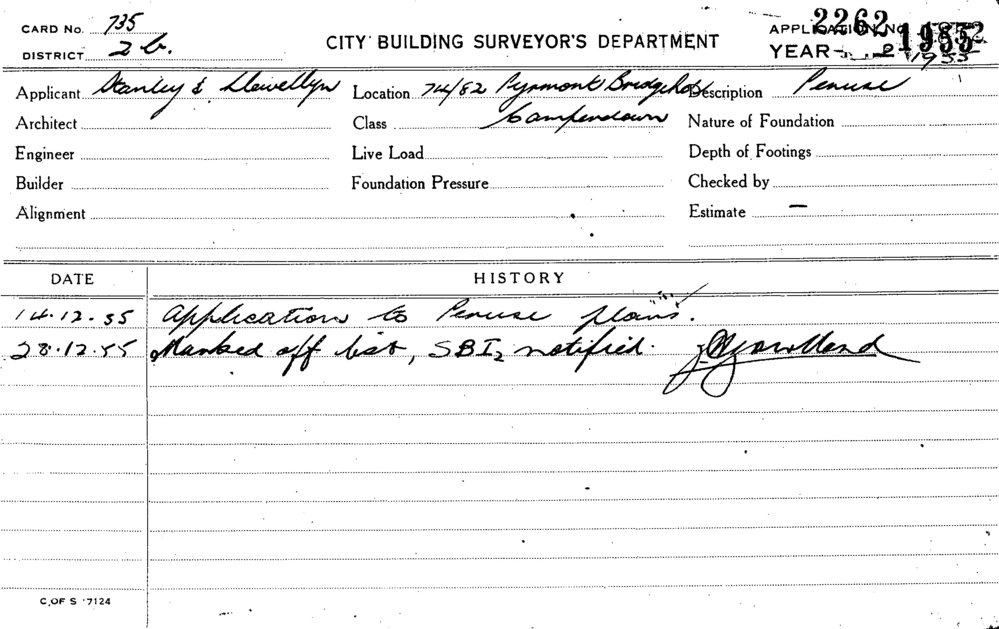 CARD No. 735
DISTRICT 2b.
CITY BUILDING SURVEYOR'S DEPARTMENT
APPLICATION No. 2262
YEAR 1955
Applicant Stanley & Llewellyn
Location 74/82 Pyrmont Bridge
Description Peruse
Architect
Class Camperdown
Nature of Foundation
Engineer
Live Load
Depth of Footings
Builder
Foundation Pressure
Checked by
Alignment
Estimate —
DATE HISTORY
14.12.55 Application to Peruse plans.
28.12.55 Marked off list, SBI2 notified.
C. OF S 7124